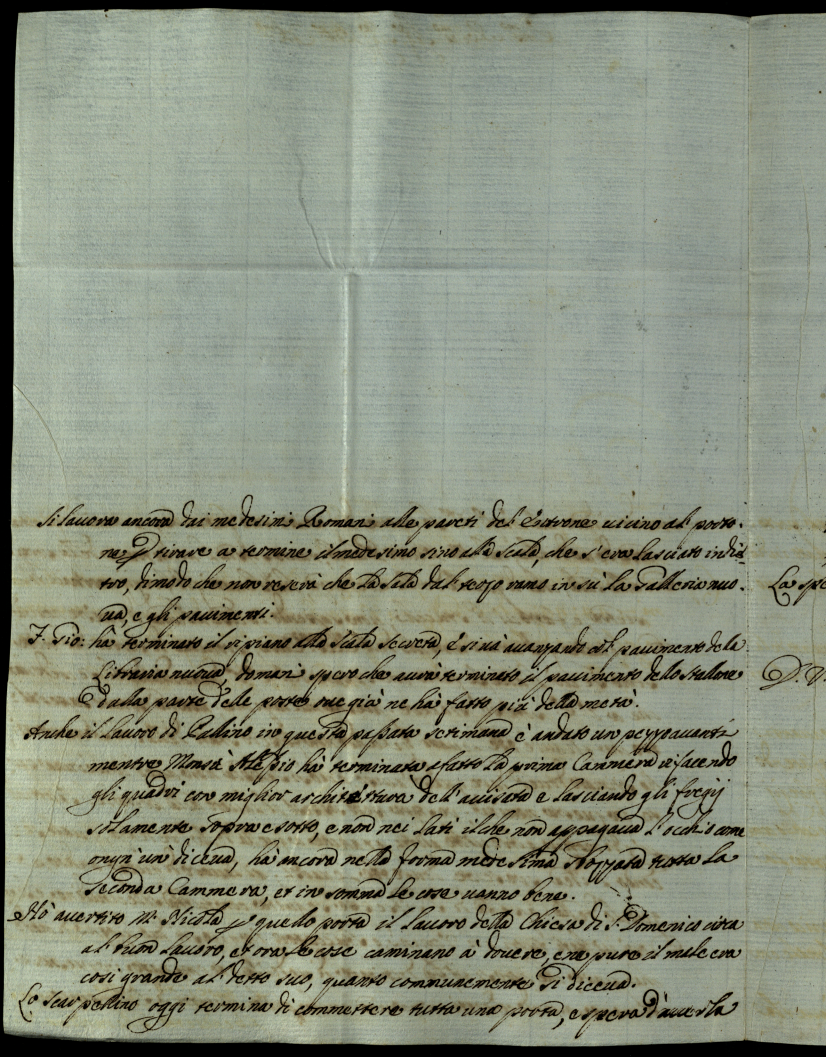 Si lavora ancora dai medesimi Romani alle pareti del Entrone vicino al porto-
ne p tirare a termine il medesimo sino alla scala, che s'era lasciato indie-
tro, dimodo che non resterà che la sala dal terzo ramo in sù la Galleria nuo-
va, e gli pavimenti.
F. Gio: hà terminato il ripiano alla scala secreta, e si và avanzando col pavimento de la
Libraria nuova, domani spero che avrà terminato il pavimento dello stallone
dalla parte delle poste ove già ne hà fatto più della metà.
Anche il lavoro di Pallino in questa passata settimana è andato un pezzo avanti
mentre Monsù Alessio hà terminata afatto la prima Cammera rifacendo
gli quadri con miglior architettura dell'avisata e lasciando gli fregij
solamente sopra e sotto, e non nei lati il che non appagava l'occhio come
ogn'un diceva, hà ancora nella forma medesima sbozzata tutta la
seconda Cammera, et in somma le cose vanno bene.
Hò avertito M. Nicola p quello porta il lavoro della Chiesa di S. Domenico circa
al buon lavoro, et ora le cose caminano à dovere, era pure il male era
cosi grande al detto suo, quanto communemente si diceva.
Lo scarpellino oggi termina di commettere tutta una porta, e spera d'averla
La spe
D. V.